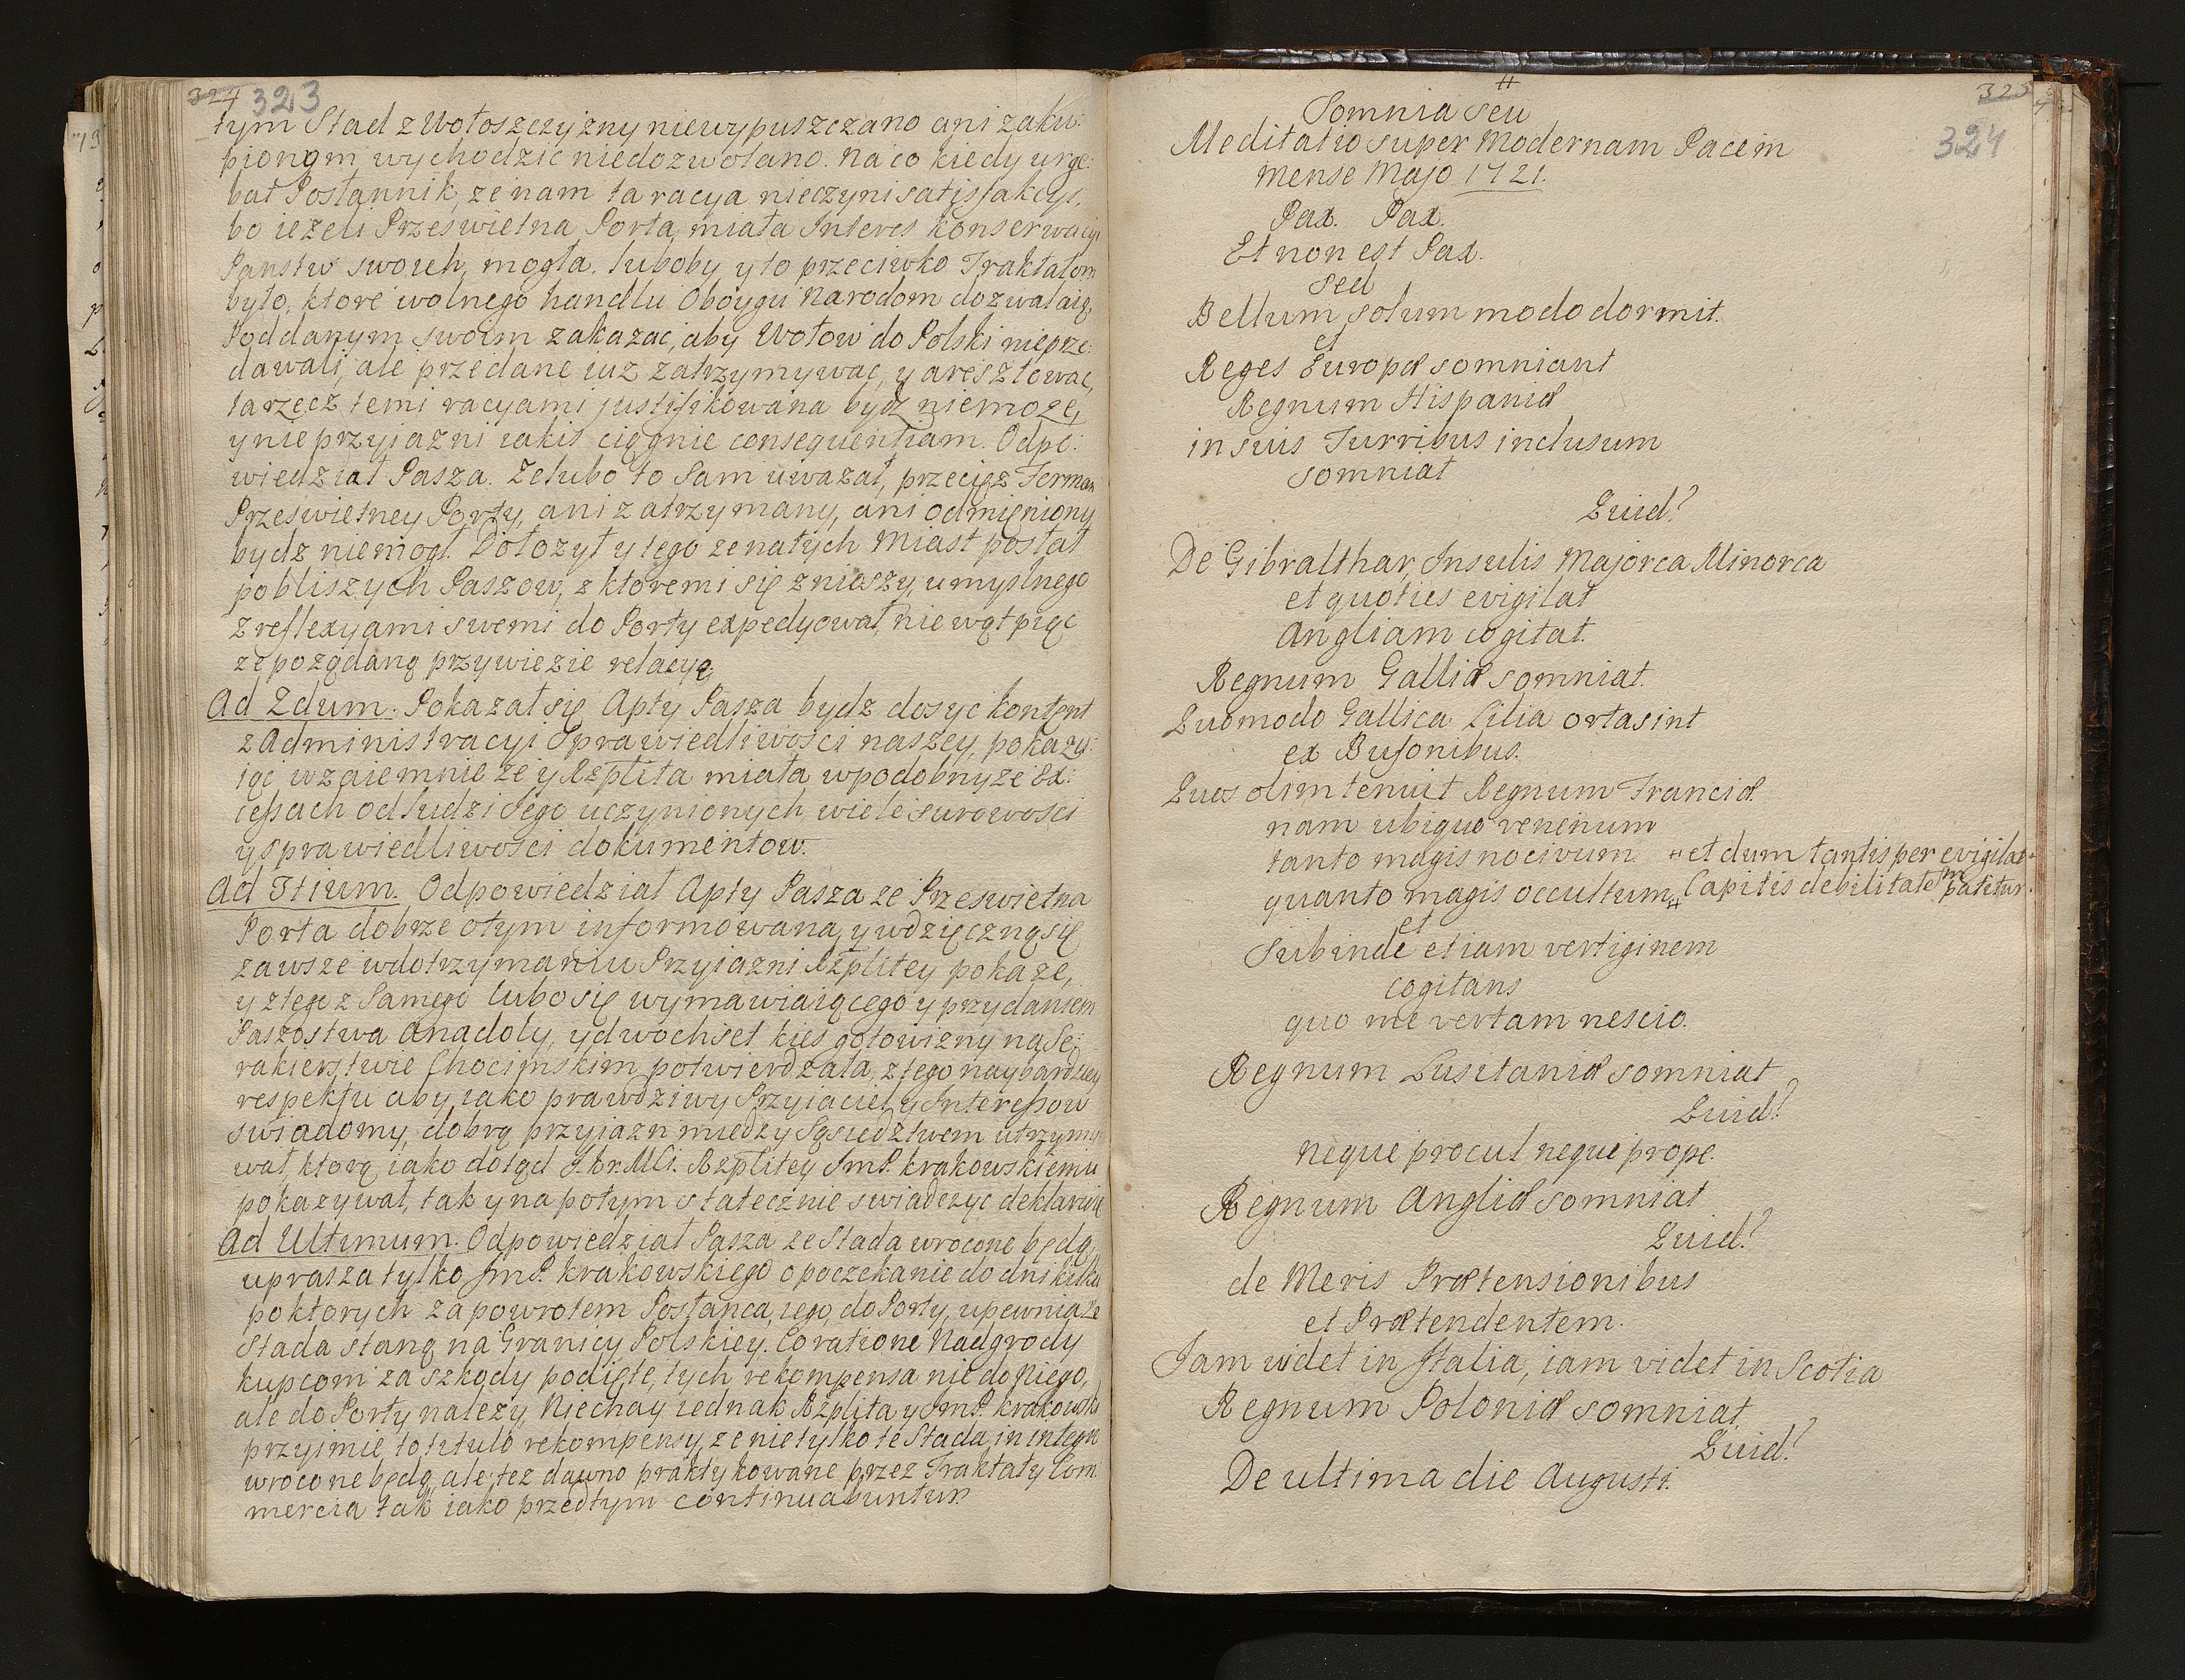 324 323
tym Stad z Wołoszczyzny niewypuszczano ani zaku:
pionąm wychodzic niedozwolano. Na co kiedy urge:
bat Posłannik, ze nam ta racya nieczyni satisfakcyi,
bo iezeli Przeswietna Porta miała Interes konserwacyi
Panstw swoich, mogła, luboby y to przeciwko Traktatom
było, ktore wolnego handlu Oboygu Narodom dozwalaią,
Poddanym swoim zakazac, aby Wołow do Polski nieprze:
dawali, ale przedane iuz zatrzymywac, y aresztowac,
ta rzecz temi racyami justifikowana bydz niemoze,
y nieprzyiazni iakis ciągnie consequentiam. Odpo:
wiedział Pasza. Ze lubo to Sam uwazał, przecięz Ferman
Przeswietney Porty, ani zatrzymany, ani odmięniony
bydz niemogł. Dołozył y tego ze natych miast posłał
pobliszych Paszow, z ktoremi się zniosszy, umyslnego
z reflexyami swemi do Porty expedyował, nie wątpiąc
ze poządaną przywiezie relacyę.
Ad 2dum. Pokazał się Apty Pasza bydz dosyc kontent
z Administracyi Sprawiedliwosci naszey, pokazu:
iąc wzaiemnie ze y Rzplita miała wpodobnyze Ex:
cessach od ludzi Jego uczynionych wiele surowosci
y sprawiedliwosci dokumentow.
Ad 3tium. Odpowiedział Apty Pasza ze Przeswietna
Porta dobrze otym informowana, y wdzięczną się
zawsze wdotrzymaniu Przyiazni Rzplitey pokaze,
y ztego z Samego lubo się wymawiaiącego y przydaniem
Paszostwa Anadoly, y dwochset kies gotowizny na Se:
rakierstwie Chocimskim potwierdzała, z tego naybardziey
respektu aby iako prawdziwy Przyiaciel y Interessow
swiadomy, dobrą przyiazn między Sąsiedztwem utrzymy
wał, ktorą iako dotąd J. Kr. Mci. Rzplitey JmP. krakowskiemu
pokazywał, tak y na potym statecznie swiadczyc deklaruie
Ad Ultimum. Odpowiedział Pasza ze Stada wrocone będą,
uprasza tylko JmP. krakowskiego o poczekanie do dni kilku
po ktorych za powrotem Posłanca iego, do Porty, upewnia ze
Stada staną na Granicy Polskiey. Co ratione Nadgrody
kupcom za szkody podięte, tych rekompensa nie do Niego,
ale do Porty nalezy, Niechay iednak Rzplita y JmP. krakowski
przyimie to titulo rekompensy, ze nietylko te Stada in integro
wrocone będą, ale tez dawno praktykowane przez Traktaty Com
mercia tak iako przedtym continuabuntur.
325
324
Somnia seu
Meditatio super Modernam Pacem
Mense Majo 1721.
Pax. Pax.
Et non est Pax.
sed
Bellum solum modo dormit.
et
Reges Europæ somniant
Regnum Hispaniæ
in suis Turribus inclusum
somniat
Quid?
De Gibralthar Insulis Majorca Minorca
et quoties evigilat
Angliam cogitat.
Regnum Galliæ somniat.
Quomodo Gallica Lilia orta sint
ex Bufonibus.
Quos olim tenuit Regnum Franciæ.
nam ubiquo venenum
tanto magis nocivum # et dum tantisper evigilat
quanto magis occultum # Capitis debilitatem patitur.
et
Subinde etiam vertiginem
cogitans
quo me vertam nescio.
Regnum Lusitaniæ somniat
Quid?
neque procul neque prope.
Regnum Angliæ somniat
Quid?
de Meris Prætensionibus
et Prætendentem.
Jam videt in Italia, iam videt in Scotia
Regnum Poloniæ somniat
Quid?
De ultima die Augusti.